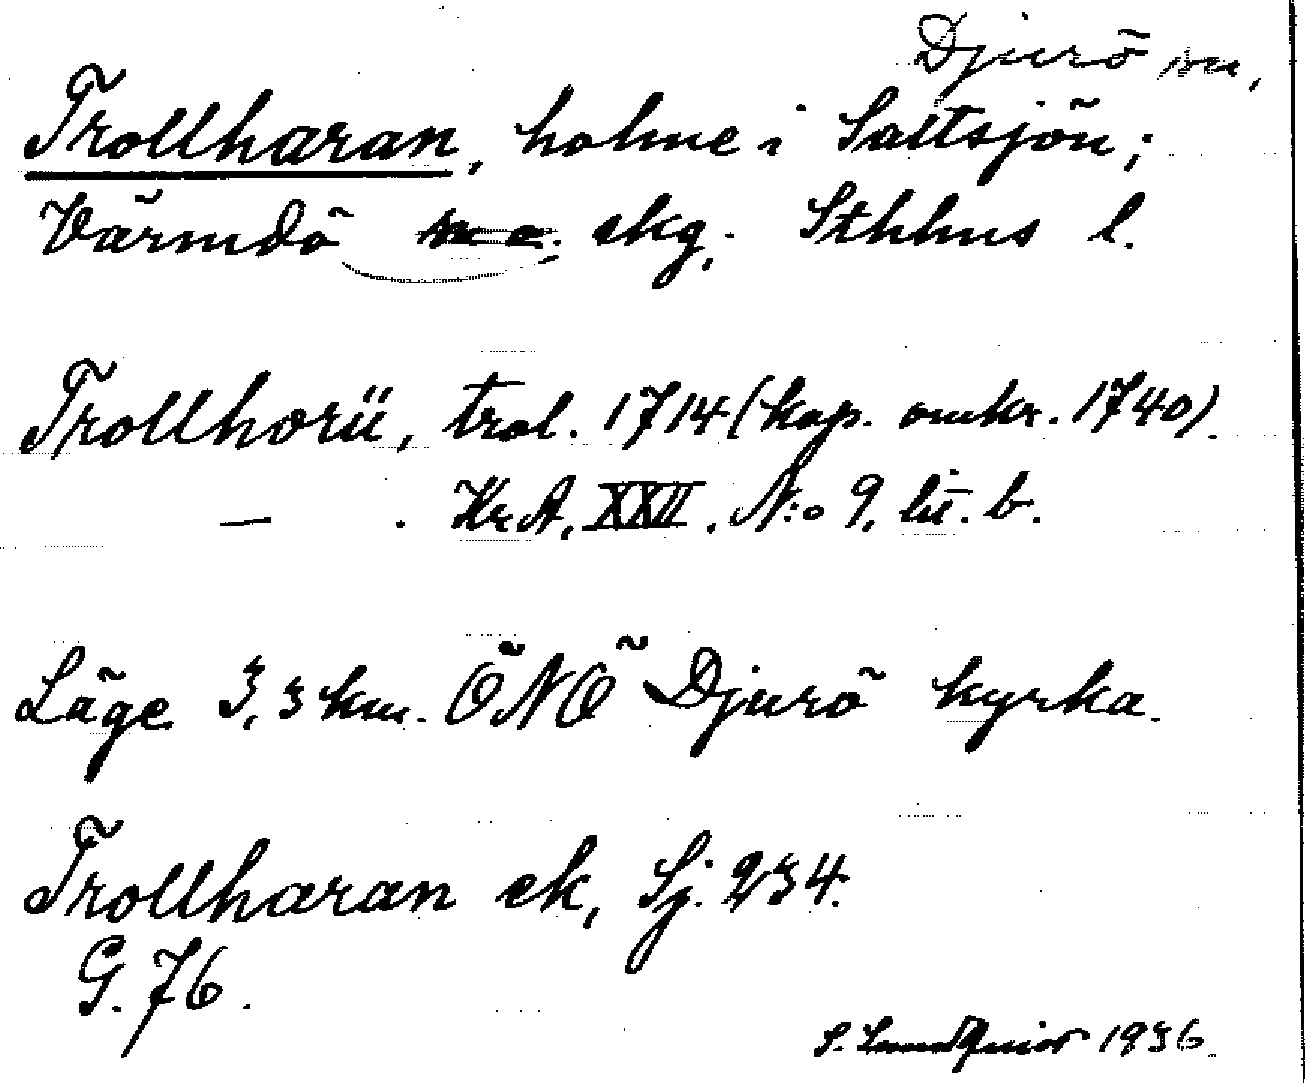 Djurö sn,
Trollharan, holme i Saltsjön;
Värmdö skg. Sthlms l.
Trollhorü, trol. 1714 (kop. omkr. 1740).
— . KrA, XXII. N:o 9, lit. b.
Läge 3,3 km. ÖNÖ Djurö kyrka.
Trollharan ek, Sj. 234.
G. 76.
S. Lundquist 1936.